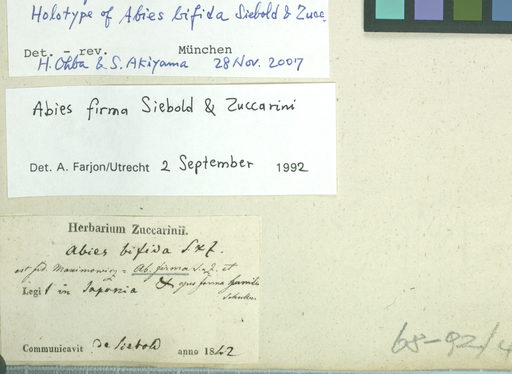 Holotype of Abies bifida Siebold & Zucc.
Det. - rev. München
H. Ohba & S. Akiyama 28 Nov. 2007
Abies firma Siebold & Zuccarini
Det. A. Farjon/Utrecht 2 September 1992
Herbarium Zuccarinii.
Abies bifida S & Z.
est fid. Maximowicz = Ab. firma S. & Z. et
Legit in Japonia
Communicavit de Siebold anno 1842
68-92/4